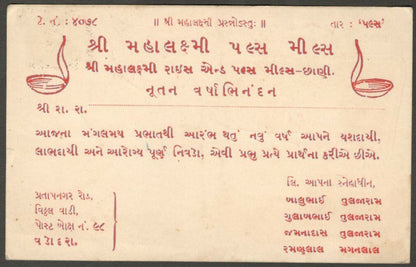 ટે. નં. : ૪૦૭૮ ॥ શ્રી મહાલક્ષ્મી પ્રસન્નોસ્તુઃ ॥ તાર : ‘પલ્સ’
શ્રી મહાલક્ષ્મી પલ્સ મીલ્સ
શ્રી મહાલક્ષ્મી રાઇસ એન્ડ પલ્સ મીલ્સ-છાણી.
નૂતન વર્ષાભિનંદન
શ્રી રા. રા.
આજના મંગલમય પ્રભાતથી આરંભ થતું નવું વર્ષ આપને યશદાયી,
લાભદાયી અને આરોગ્ય પૂર્ણ નિવડો, એવી પ્રભુ પ્રત્યે પ્રાર્થના કરીએ છીએ.
પ્રતાપનગર રોડ,
વિઠ્ઠલ વાડી,
પોસ્ટ બોક્ષ નં. ૯૮
વડોદરા.
લિ. આપના સ્નેહાધીન,
બાલુભાઈ તુલજારામ
ગુલાબભાઈ તુલજારામ
જમનાદાસ તુલજારામ
રમણલાલ મગનલાલ